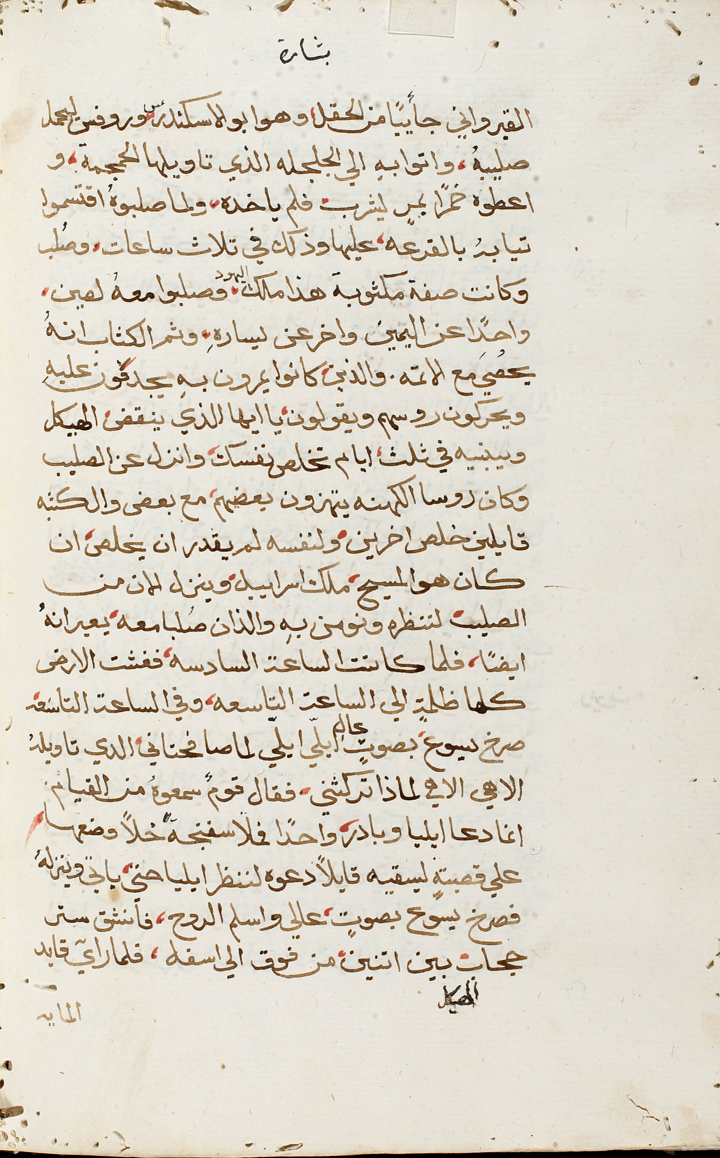 بشارة
القيرواني جأييًا من الحقل، وهو ابو الاسكندرس وروفس ليحمل
صليبهُ، واتوا به الي الجلجله الذي تاويلها الجمجمة، و
اعطوه خمرًا بمرٍ ليشرب فلم ياخده، ولما صلبوهُ اقتسموا
تيابهُ بالقرعه، عليها وذلك في تلاث ساعات، وصُلب
وكانت صفة مكثوبة هذا ملك اليهود، وصلبوا معهُ لصين،
واحدًا عن اليمين واخر عن يسارهِ، وثم الكثاب انهُ
يحصَي مع الاتمه. والذين كانوا يمرون بهِ يجدفون عليهِ
ويحركون روسهم ويقولون يا ايها الذي ينقض الهيكل
ويبنيه في ثلث ايام تخلص نفسك وانزل عن الصليب
وكان روسا الكهنه يتهزون بعضهم مع بعض والكثبه
قايلين خلص اخرين، ولنفسه لم يقدر ان يخلص ان
كان هو المسيح، ملك اسراييل، وينزل الان من
الصليب لننظره ونومن بهِ والذان صُلبا معه، يعيرانهُ
ايضًا، فلما كانت الساعة السادسة، فغشت الارض
كلها ظلمةٍ الي الساعة التاسعه، وفي الساعة التاسعه
صرخ يسوع، بصوتٍ عالٍ ايلّي ايلّي لماصافختاني الدي تاويلهُ
الاهي الاهي لماذا تركثني. فقال قومً سمعوهُ من القيام
انما دعا ايليا وبادر واحدًا فملا سفنجة خلاً وضعها
علي قصبةٍ ليسقيه قايلاً دعوه لننظر ايليا حتي ياتي وينزلهُ
فصرخ يسوع بصوتٍ، عالي واسلم الروح، فانشق ستر
حجاب بين اتنين، من فوق الي اسفل، فلما راي قايد
الهيكل
المايه